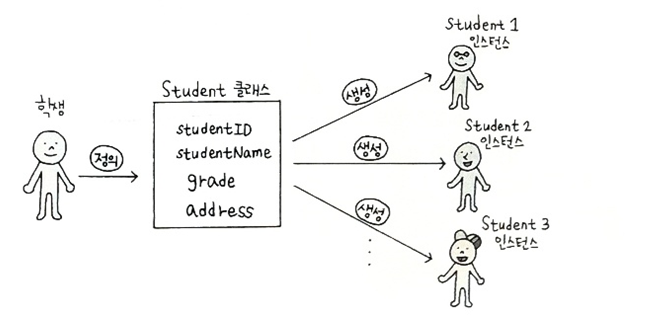 학생
정의
Student 클래스
studentID
studentName
grade
address
생성
생성
생성
Student 1
인스턴스
Student 2
인스턴스
Student 3
인스턴스